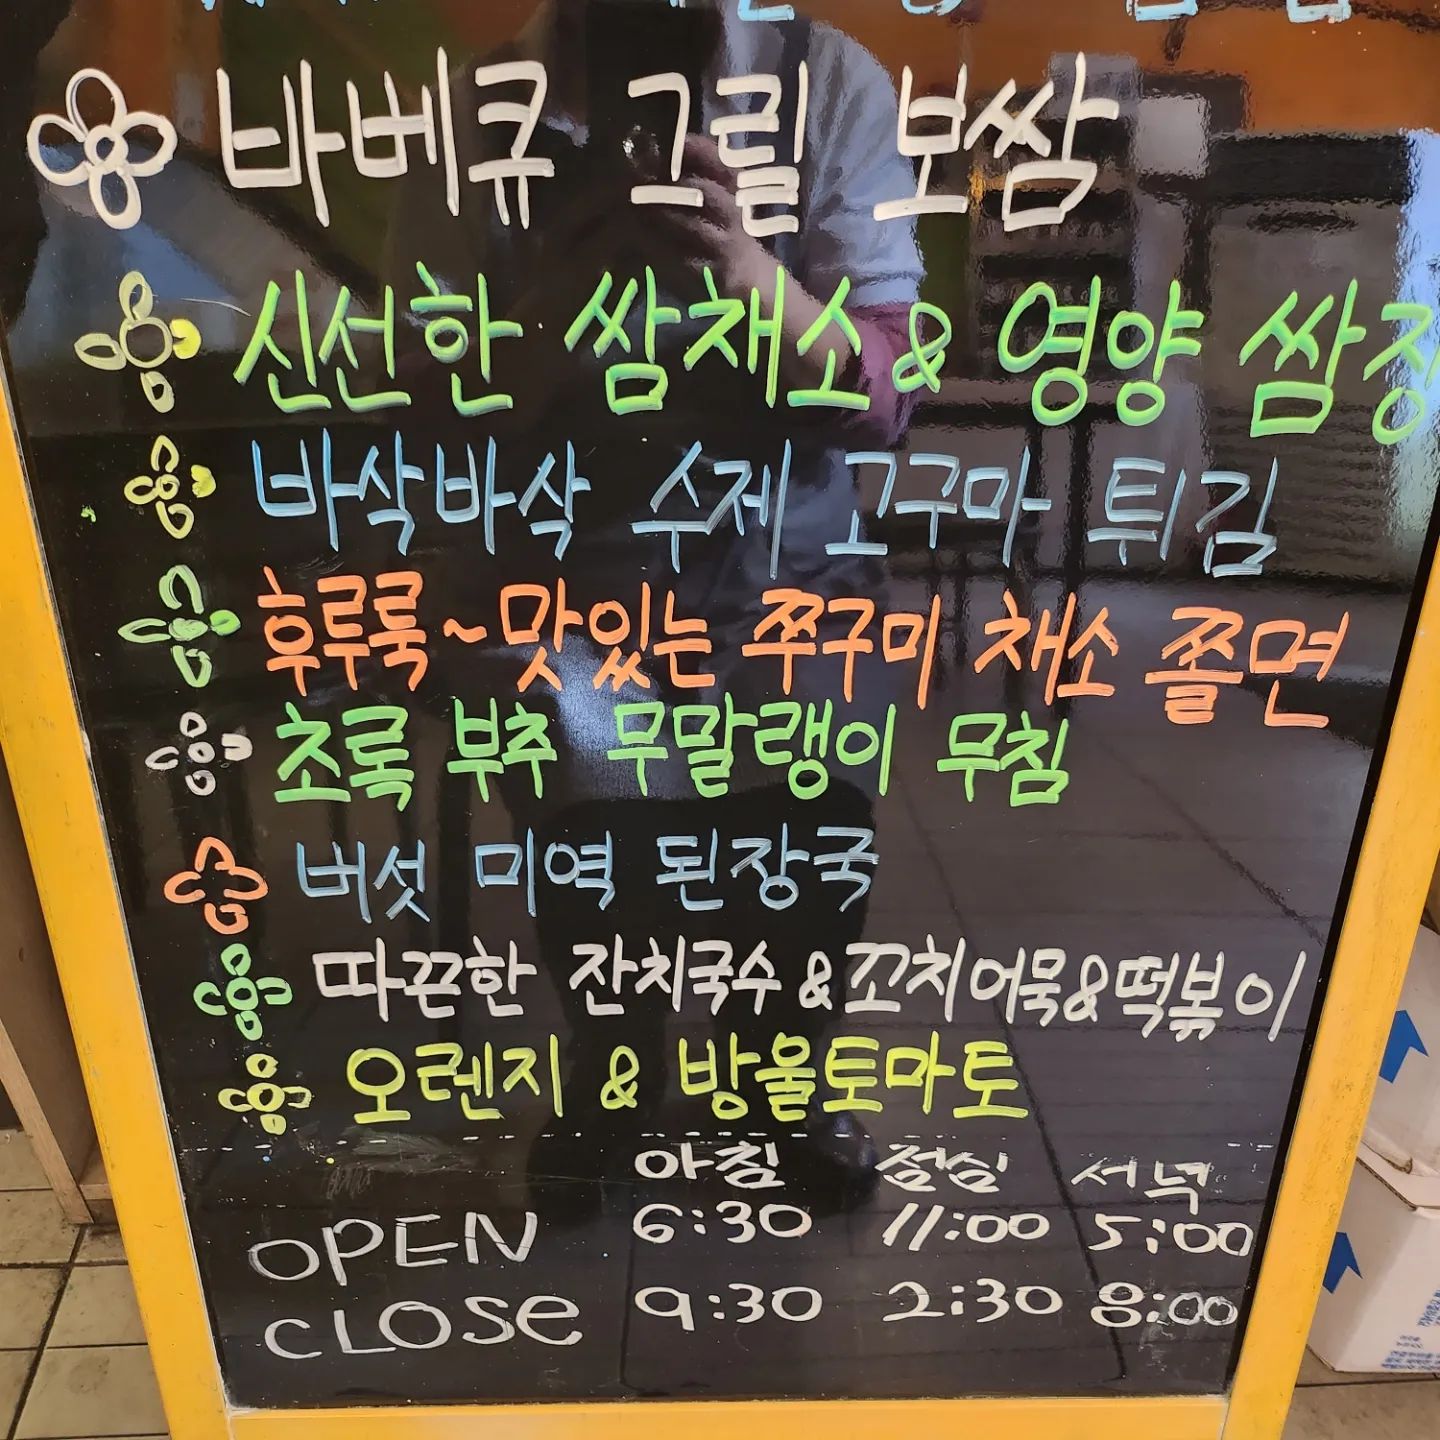 바베큐 그릴 보쌈
신선한 쌈채소 & 영양 쌈장
바삭바삭 수제 고구마 튀김
후루룩~맛있는 쭈구미 채소 쫄면
초록 부추 무말랭이 무침
버섯 미역 된장국
따끈한 잔치국수 & 꼬치어묵 & 떡볶이
오렌지 & 방울토마토
아침 점심 저녁
OPEN 6:30 11:00 5:00
CLOSe 9:30 2:30 8:00